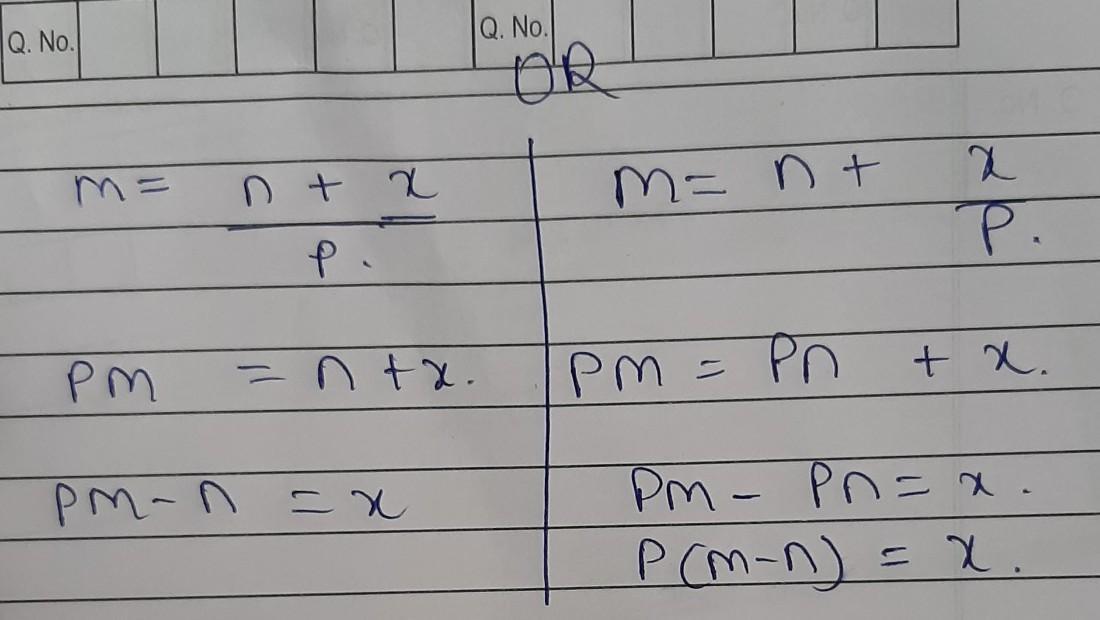 Q. No. Q. No.
OR
m = n + x / p.
pm = n + x.
pm - n = x
m = n + x / p.
pm = pn + x.
pm - pn = x.
p(m-n) = x.